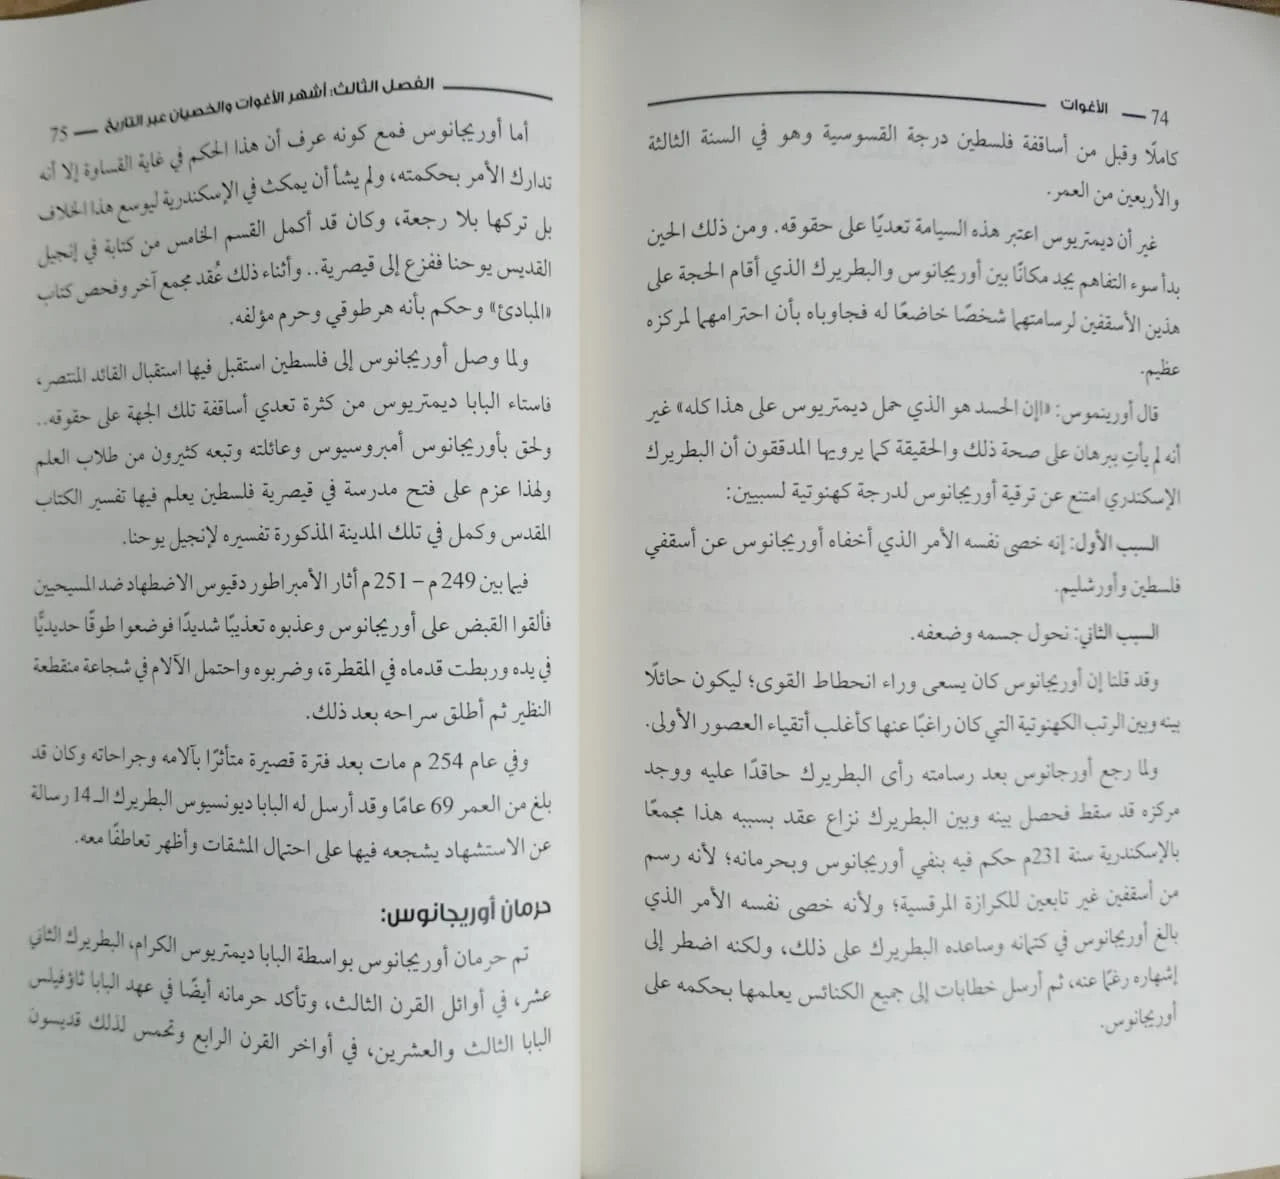 74 — الأغوات
كاملًا وقبل من أساقفة فلسطين درجة القسوسية وهو في السنة الثالثة
والأربعين من العمر.
غير أن ديمتريوس اعتبر هذه السيامة تعديًا على حقوقه. ومن ذلك الحين
بدأ سوء التفاهم يجد مكانًا بين أوريجانوس والبطريرك الذي أقام الحجة على
هذين الأسقفين لرسامتهما شخصًا خاضعًا له فجاوباه بأن احترامهما لمركزه
عظيم.
قال أورينموس: «إن الحسد هو الذي حمل ديمتريوس على هذا كله» غير
أنه لم يأتِ ببرهان على صحة ذلك والحقيقة كما يرويها المدققون أن البطريرك
الإسكندري امتنع عن ترقية أوريجانوس لدرجة كهنوتية لسببين:
السبب الأول: إنه خصى نفسه الأمر الذي أخفاه أوريجانوس عن أسقفي
فلسطين وأورشليم.
السبب الثاني: نحول جسمه وضعفه.
وقد قلنا إن أوريجانوس كان يسعى وراء انحطاط القوى؛ ليكون حائلًا
بينه وبين الرتب الكهنوتية التي كان راغبًا عنها كأغلب أتقياء العصور الأولى.
ولما رجع أورجانوس بعد رسامته رأى البطريرك حاقدًا عليه ووجد
مركزه قد سقط فحصل بينه وبين البطريرك نزاع عقد بسببه هذا مجمعًا
بالإسكندرية سنة 231م حكم فيه بنفي أوريجانوس وبحرمانه؛ لأنه رسم
من أسقفين غير تابعين للكرازة المرقسية؛ ولأنه خصى نفسه الأمر الذي
بالغ أوريجانوس في كتمانه وساعده البطريرك على ذلك، ولكنه اضطر إلى
إشهاره رغمًا عنه، ثم أرسل خطابات إلى جميع الكنائس يعلمها بحكمه على
أوريجانوس.
الفصل الثالث: أشهر الأغوات والخصيان عبر التاريخ — 75
أما أوريجانوس فمع كونه عرف أن هذا الحكم في غاية القساوة إلا أنه
تدارك الأمر بحكمته، ولم يشأ أن يمكث في الإسكندرية ليوسع هذا الخلاف
بل تركها بلا رجعة، وكان قد أكمل القسم الخامس من كتابة في إنجيل
القديس يوحنا ففزع إلى قيصرية.. وأثناء ذلك عُقد مجمع آخر وفحص كتاب
«المبادئ» وحكم بأنه هرطوقي وحرم مؤلفه.
ولما وصل أوريجانوس إلى فلسطين استقبل فيها استقبال القائد المنتصر،
فاستاء البابا ديمتريوس من كثرة تعدي أساقفة تلك الجهة على حقوقه..
ولحق بأوريجانوس أمبروسيوس وعائلته وتبعه كثيرون من طلاب العلم
ولهذا عزم على فتح مدرسة في قيصرية فلسطين يعلم فيها تفسير الكتاب
المقدس وكمل في تلك المدينة المذكورة تفسيره لإنجيل يوحنا.
فيما بين 249 م – 251 م أثار الأمبراطور دقيوس الاضطهاد ضد المسيحيين
فألقوا القبض على أوريجانوس وعذبوه تعذيبًا شديدًا فوضعوا طوقًا حديديًّا
في يده وربطت قدماه في المقطرة، وضربوه واحتمل الآلام في شجاعة منقطعة
النظير ثم أطلق سراحه بعد ذلك.
وفي عام 254 م مات بعد فترة قصيرة متأثرًا بآلامه وجراحاته وكان قد
بلغ من العمر 69 عامًا وقد أرسل له البابا ديونسيوس البطريرك الـ14 رسالة
عن الاستشهاد يشجعه فيها على احتمال المشقات وأظهر تعاطفًا معه.
حرمان أوريجانوس:
تم حرمان أوريجانوس بواسطة البابا ديمتريوس الكرام، البطريرك الثاني
عشر، في أوائل القرن الثالث، وتأكد حرمانه أيضًا في عهد البابا ثاؤفيلس
البابا الثالث والعشرين، في أواخر القرن الرابع وتحمس لذلك قديسون